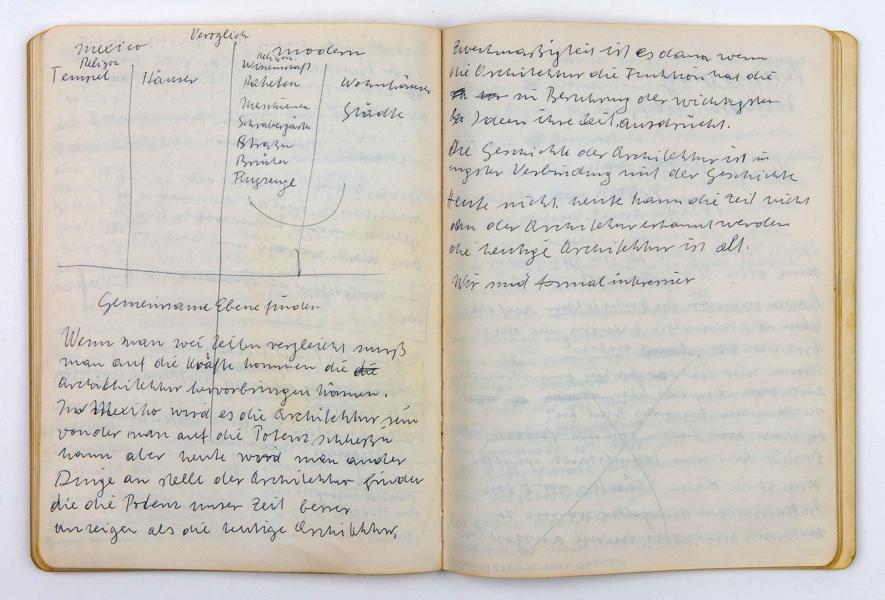 Vergleich
Mexico
modern
Religion
Tempel
Häuser
Religion
Wissenschaft
Raketen
Maschienen
Straßen
Brücken
Flugzeuge
Wohnhäuser
Städte
Gemeinsame Ebene finden
Wenn man zwei Zeiten vergleicht muß
man auf die Kräfte kommen die die
Architektur hervorbringen können.
In Mexiko wird es die Architektur sein
von der man auf die Potenz schließen
kann aber heute wird man ander
Dinge an stelle der Architektur finden
die die Potenz unser Zeit besser
anzeigen als die heutige Architektur,
Zweckmaßigkeit ist es dann wenn
die Architektur die Funktion hat die
in Berührung der wichtigsten
Ideen ihre Zeit ausdrückt.
Die Geschichte der Architektur ist in
engster Verbindung mit der Geschichte
Heute nicht, heute kann die Zeit nicht
an der Architektur erkannt werden
die heutige Architektur ist alt.
Wir sind formal